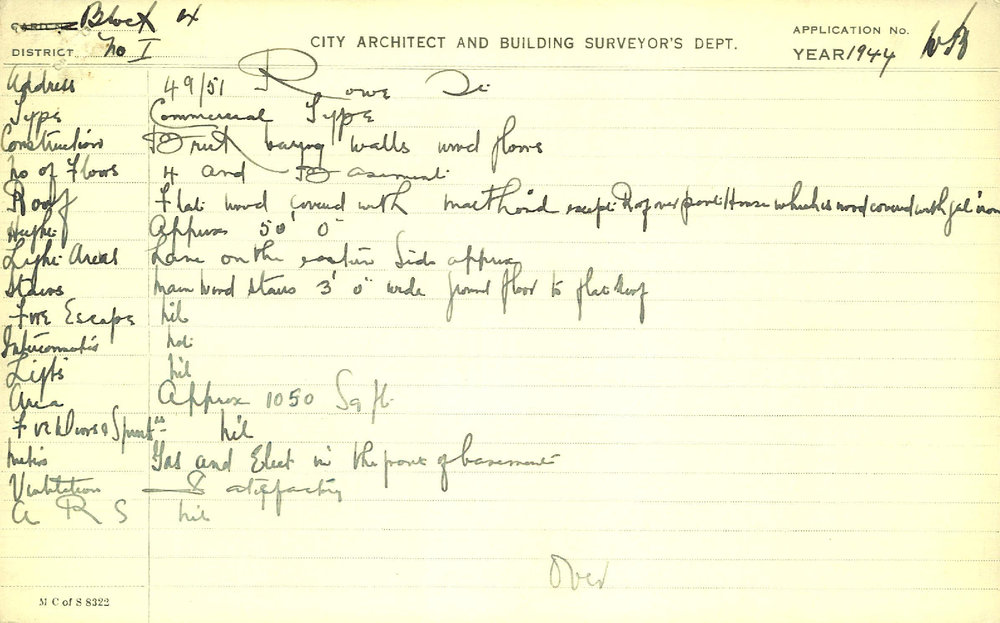 Block 4
CARD No.
DISTRICT No I
CITY ARCHITECT AND BUILDING SURVEYOR'S DEPT.
APPLICATION No.
YEAR 1944
Address 49/51 Rowe St
Type Commercial Type
Construction Brick baring walls wood floors
No of Floors 4 and Basement
Roof Flat wood covered with malthoid except Roof over pent House which is wood covered with gal iron
Height Approx 50' 0"
Light Areas Lane on the eastern Side approx
Stairs Main Wood Stairs 3' 0" wide ground floor to flat Roof
Fire Escape nil
Intercomatic not
Lifts nil
Area Approx 1050 Sq ft.
Fire Doors & nil
Metres Gas and Elect in the front of basement
Ventilation Satisfactory
A R S nil
Over
M C of S 8322